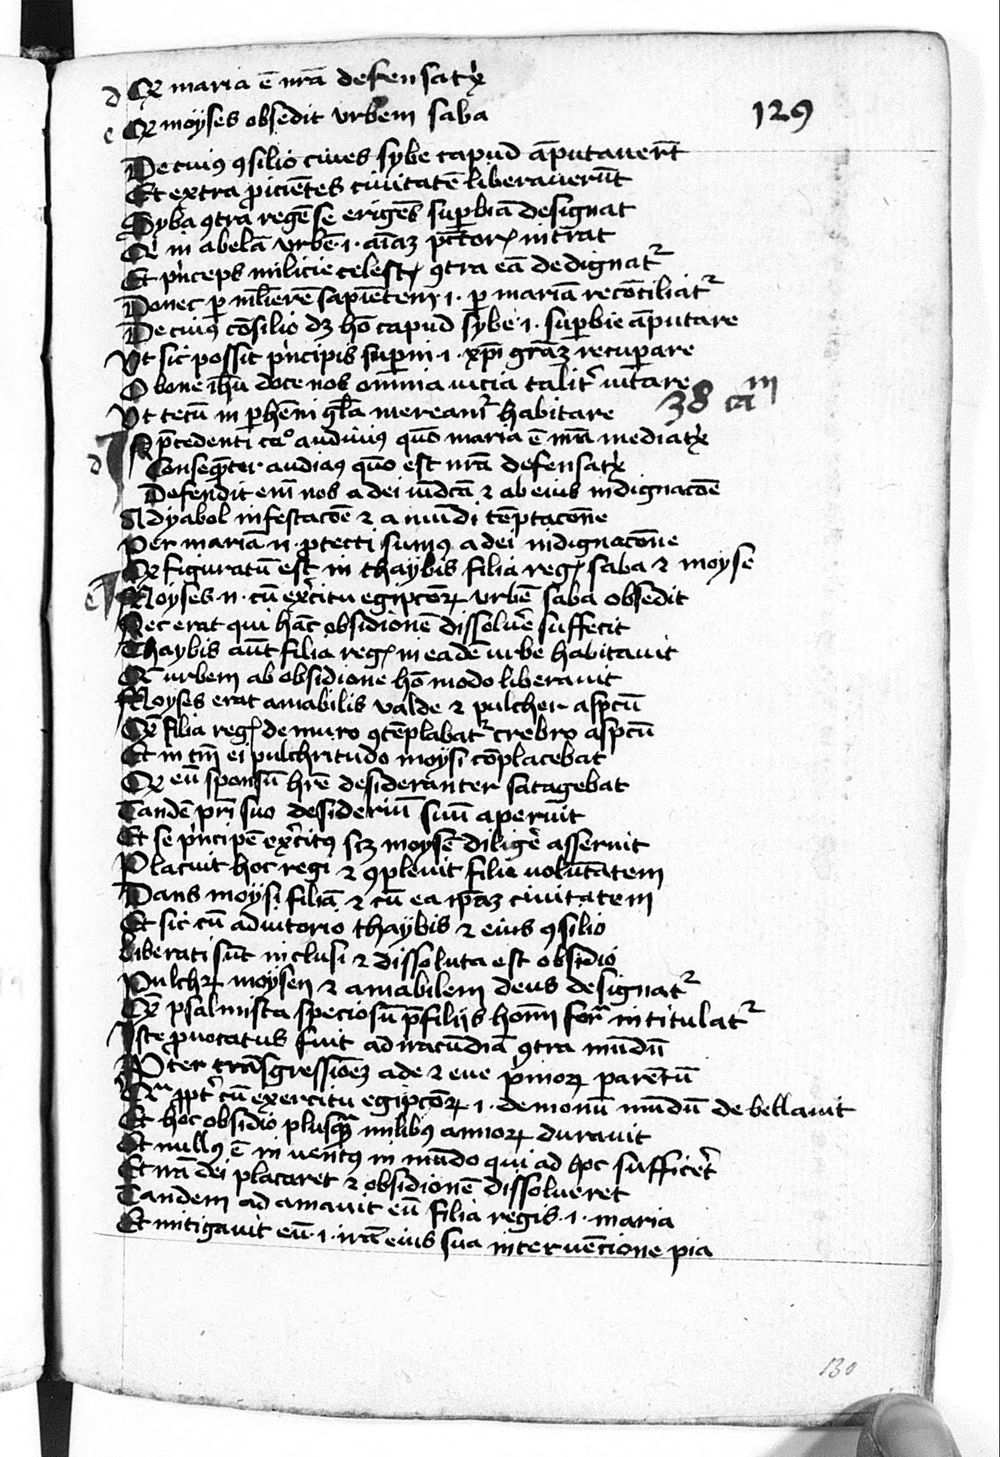 d Qꝫ maria ē nrā defensatͥx
e Qꝫ moyses obsedit vrbem saba
129
De cuiꝰ ꝯsilio ciues sybe capud āputauerūt
Et extra ꝓicientes ciuitatē liberauerūt
Syba ꝯtra regē se erigēs suꝑbiā designat
Que in abelā vrbē ·i· aīaz pctōꝝ intrat
Et pͥnceps milicie celestꝭ ꝯtra eā dedignatᷣ
Donec ꝑ mlierē sapientem ·i· ꝑ mariā reconciliatᷣ
De cuiꝰ cōsilio dꝫ hō capud sybe ·i· suꝑbie āputare
Vt sic possit pͥncipis suꝑni ·i· xpī grāꝫ recuꝑare
O bone ihū doce nos omnia vicia talitᷣ vitare
38 caᵐ
Vt tecū in ꝑhēni glīa mereamᷣ habitare
In p̄cedenti caᵒ audiuimꝰ quō maria ē nrā mediatͥx
d Conseqēter audiaꝰ quō est nrā defensatͥx
Defendit enī nos a dei vīdcā ⁊ ab eius indignacōe
A dyaboli infestacōe ⁊ a mundi tēptacōne
Per mariā n· ꝓtecti sumꝰ a dei indignacōne
Qꝫ figuratū est in thaybis filia regꝭ saba ⁊ moyse
e Moyses n· cū exͥcitu egipcōꝝ vrbē saba obsedit
Nec erat qui hāc obsidionē dissoluͤe suffecit
Thaybis aūt filia regꝭ in eadē vrbe habitauit
Que vrbem ab obsidione hō modo liberauit
Moyses erat amabilis valde ⁊ pulcher aspcū
Quē filia regꝭ de muro ꝯtēplabatᷣ crebro aspcū
Et in tm̄ ei pulchritudo moysi cōplacebat
Qꝫ eū sponsū hr̄e desideranter satagebat
Tandē pr̄i suo desideriū suū aperuit
Et se pͥncipē exͤcitꝰ scꝫ moysē diligͤe asseruit
Placuit hoc regi ⁊ ꝯpleuit filie voluntatem
Dans moysi filiā ⁊ cū ea ip̄aꝫ ciuitatem
Et sic cū adiutorio thaybis ⁊ eius ꝯsilio
Liberati sūt inclusi ⁊ dissoluta est obsidio
Pulchꝝ moysen ⁊ amabilem deus designatᷣ
Quē psalmista speciosū p̄ filijs homī forᵃ intitulatᷣ
Iste ꝓuocatus fuit ad iracūdiā ꝯtra mūdū
Ꝓpter trāsgressioneꝫ ade ⁊ eue pͥmoꝝ parentū
Qr̄ ꝓptͤ cū exercitu egipcōꝝ ·i· demonū mūdū debellauit
Et hec obsidio plusqꝫ milibꝰ annoꝝ durauit
Et nullꝰ ē inuentꝰ in mūdo qui ad hoc sufficeͤt
Et irā dei placaret ⁊ obsidionē dissolueret
Tandem adamauit eū filia regis ·i· maria
Et mitigauit eū ·i· irā eius sua interuēcione pia
130